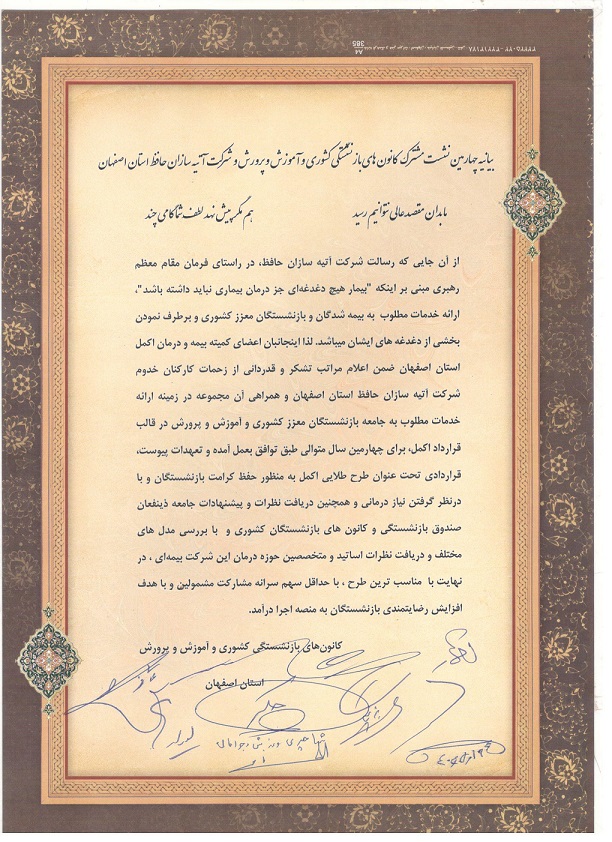 بیانیه چهارمین نشست مشترک کانون های بازنشستگی کشوری و آموزش و پرورش و شرکت آتیه سازان حافظ استان اصفهان
ما بدان مقصد عالی نتوانیم رسید هم مگر پیش نهد لطف شما گامی چند
از آن جایی که رسالت شرکت آتیه سازان حافظ، در راستای فرمان مقام معظم
رهبری مبنی بر اینکه "بیمار هیچ دغدغه‌ای جز درمان بیماری نباید داشته باشد"،
ارائه خدمات مطلوب به بیمه شدگان و بازنشستگان معزز کشوری و برطرف نمودن
بخشی از دغدغه های ایشان میباشد. لذا اینجانبان اعضای کمیته بیمه و درمان اکمل
استان اصفهان ضمن اعلام مراتب تشکر و قدردانی از زحمات کارکنان خدوم
شرکت آتیه سازان حافظ استان اصفهان و همراهی آن مجموعه در زمینه ارائه
خدمات مطلوب به جامعه بازنشستگان معزز کشوری و آموزش و پرورش در قالب
قرارداد اکمل، برای چهارمین سال متوالی طبق توافق بعمل آمده و تعهدات پیوست،
قراردادی تحت عنوان طرح طلایی اکمل به منظور حفظ کرامت بازنشستگان و با
درنظر گرفتن نیاز درمانی و همچنین دریافت نظرات و پیشنهادات جامعه ذینفعان
صندوق بازنشستگی و کانون های بازنشستگان کشوری و با بررسی مدل های
مختلف و دریافت نظرات اساتید و متخصصین حوزه درمان این شرکت بیمه‌ای ، در
نهایت با مناسب ترین طرح ، با حداقل سهم سرانه مشارکت مشمولین و با هدف
افزایش رضایتمندی بازنشستگان به منصه اجرا درآمد.
کانون‌های بازنشستگی کشوری و آموزش و پرورش
استان اصفهان
A4
385